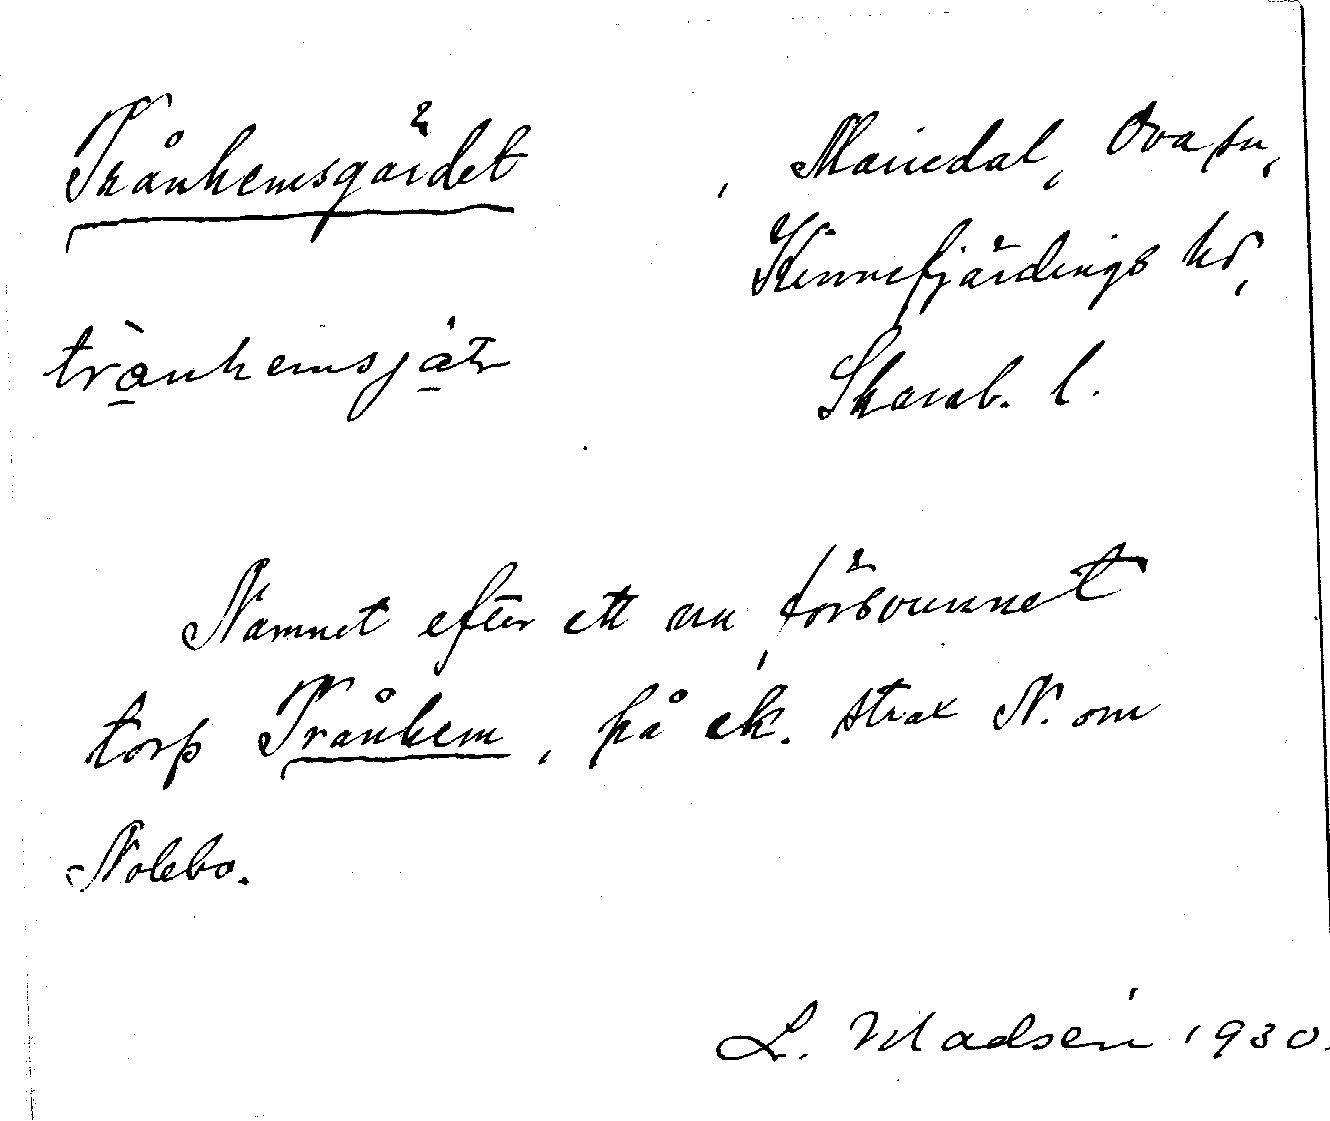 Trånhemsgärdet, Mariedal, Ova sn,
Kinnefjärdings hd,
trànhemsjät Skarab. l.
Namnet efter ett nu försvunnet
torp Trånhem, på ek. strax N. om
Nolebo.
L. Madsén 1930.